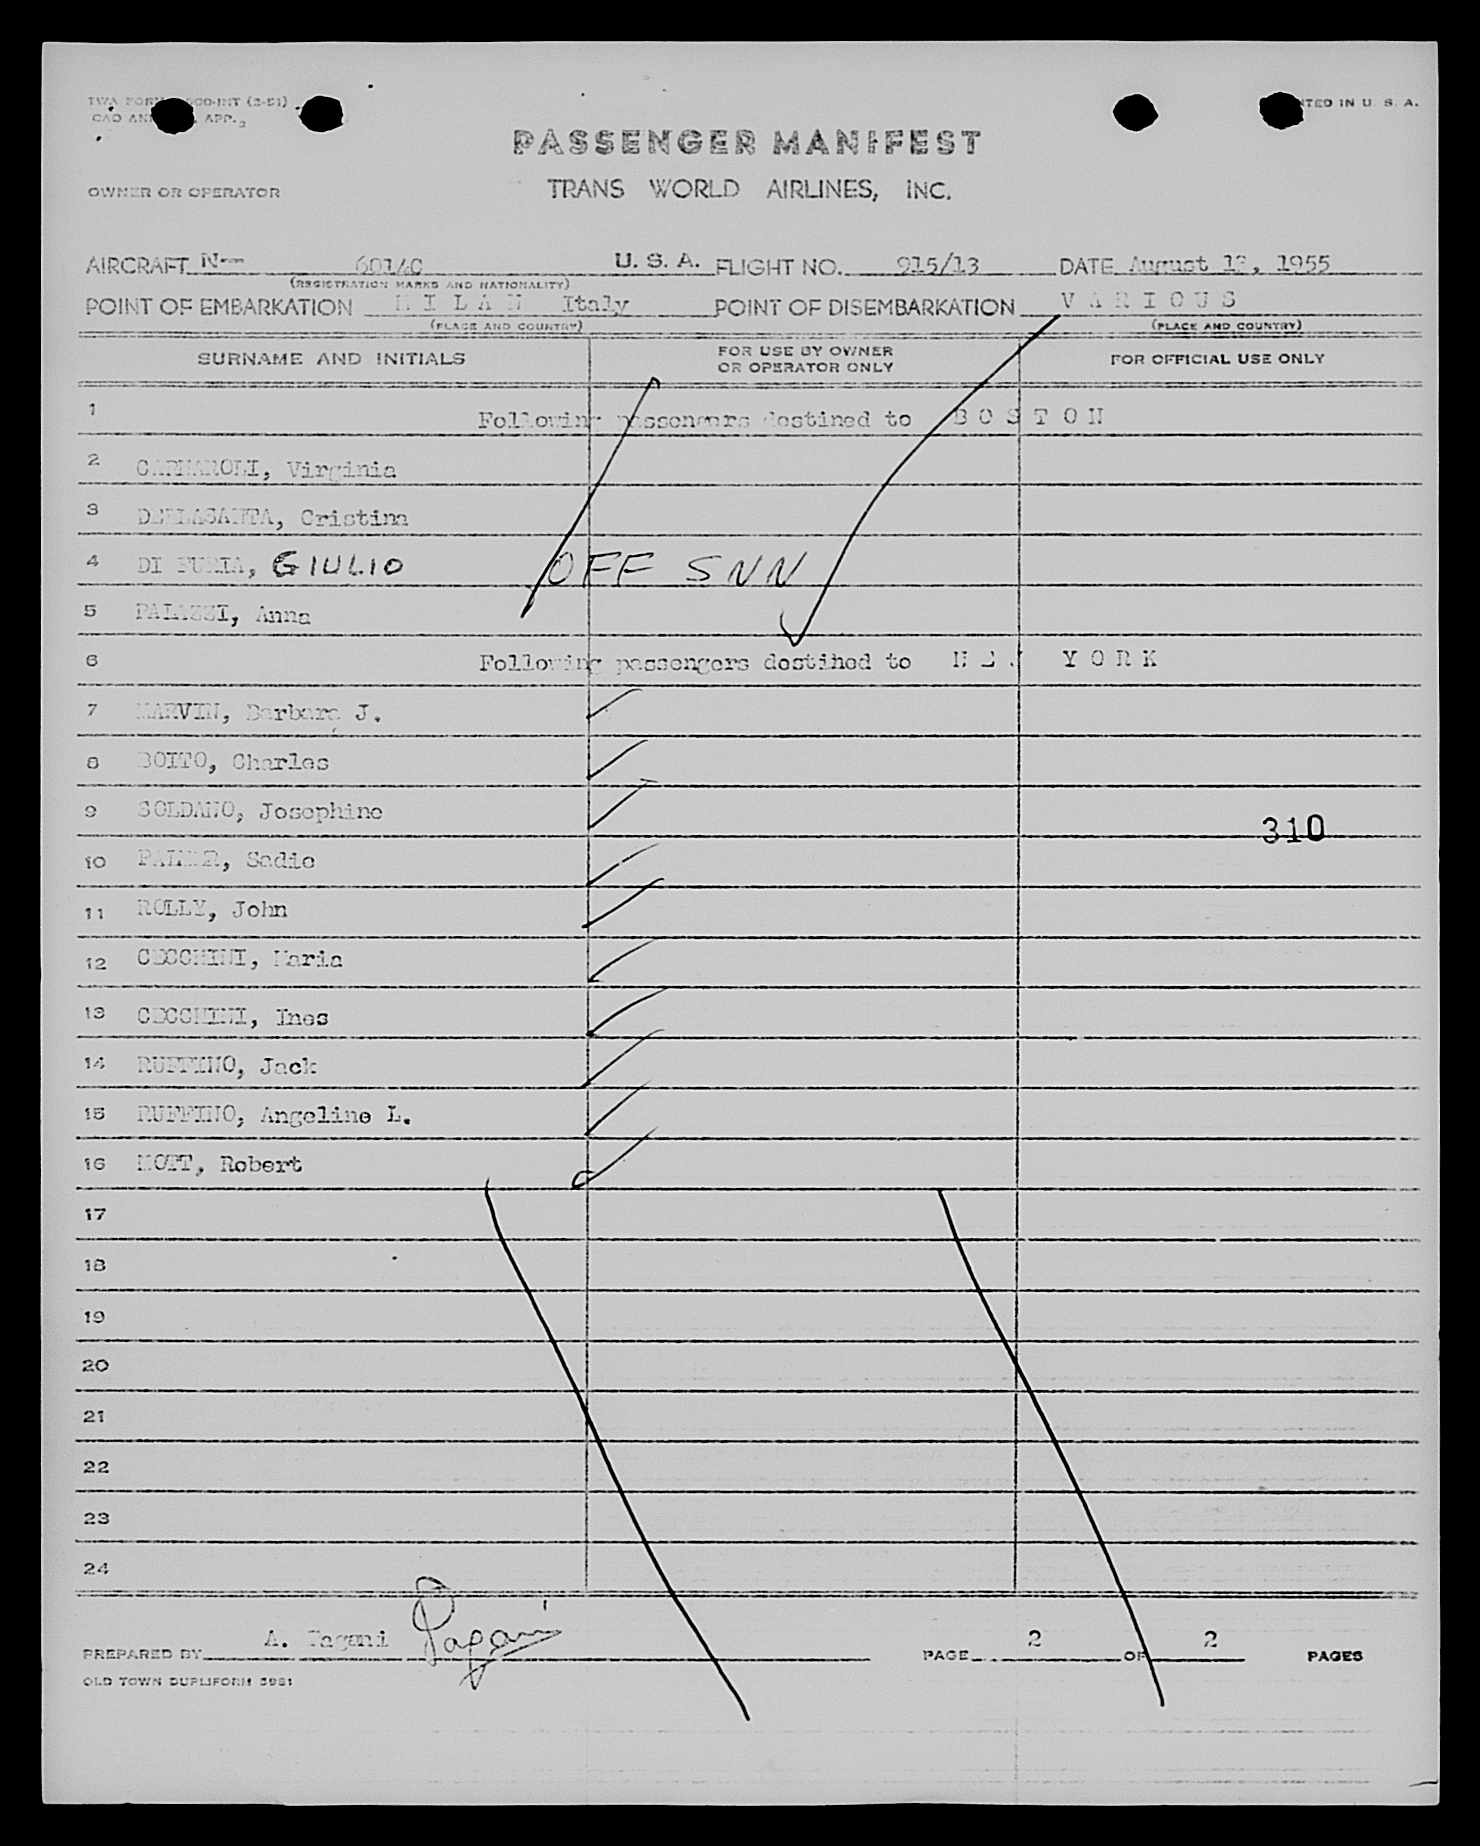 TWA FORM -INT (2-51)
PRINTED IN U. S. A.
CAO APP.
PASSENGER MANIFEST
OWNER OR OPERATOR
TRANS WORLD AIRLINES, INC.
AIRCRAFT N-- 6014C U. S. A. FLIGHT NO. 915/13 DATE August 13, 1955
(REGISTRATION MARKS AND NATIONALITY)
POINT OF EMBARKATION M I L A N Italy POINT OF DISEMBARKATION V A R I O U S
(PLACE AND COUNTRY) (PLACE AND COUNTRY)
SURNAME AND INITIALS FOR USE BY OWNER OR OPERATOR ONLY FOR OFFICIAL USE ONLY
1 Following passengers destined to B O S T O N
2 CARNAROLI, Virginia
3 DELLASANTA, Cristina
4 DI FURIA, GIULIO OFF SNN
5 PALAZZI, Anna
6 Following passengers destined to N E W Y O R K
7 MARVIN, Barbara J.
8 BOITO, Charles
9 SOLDANO, Josephine
310
10 PALMER, Sadie
11 ROLLY, John
12 CECCHINI, Maria
13 CECCHINI, Ines
14 RUFFINO, Jack
15 RUFFINO, Angeline L.
16 MOTT, Robert
17
18
19
20
21
22
23
24
PREPARED BY A. Pagani Pagani PAGE 2 OF 2 PAGES
OLD TOWN DUPLIFORM 5981